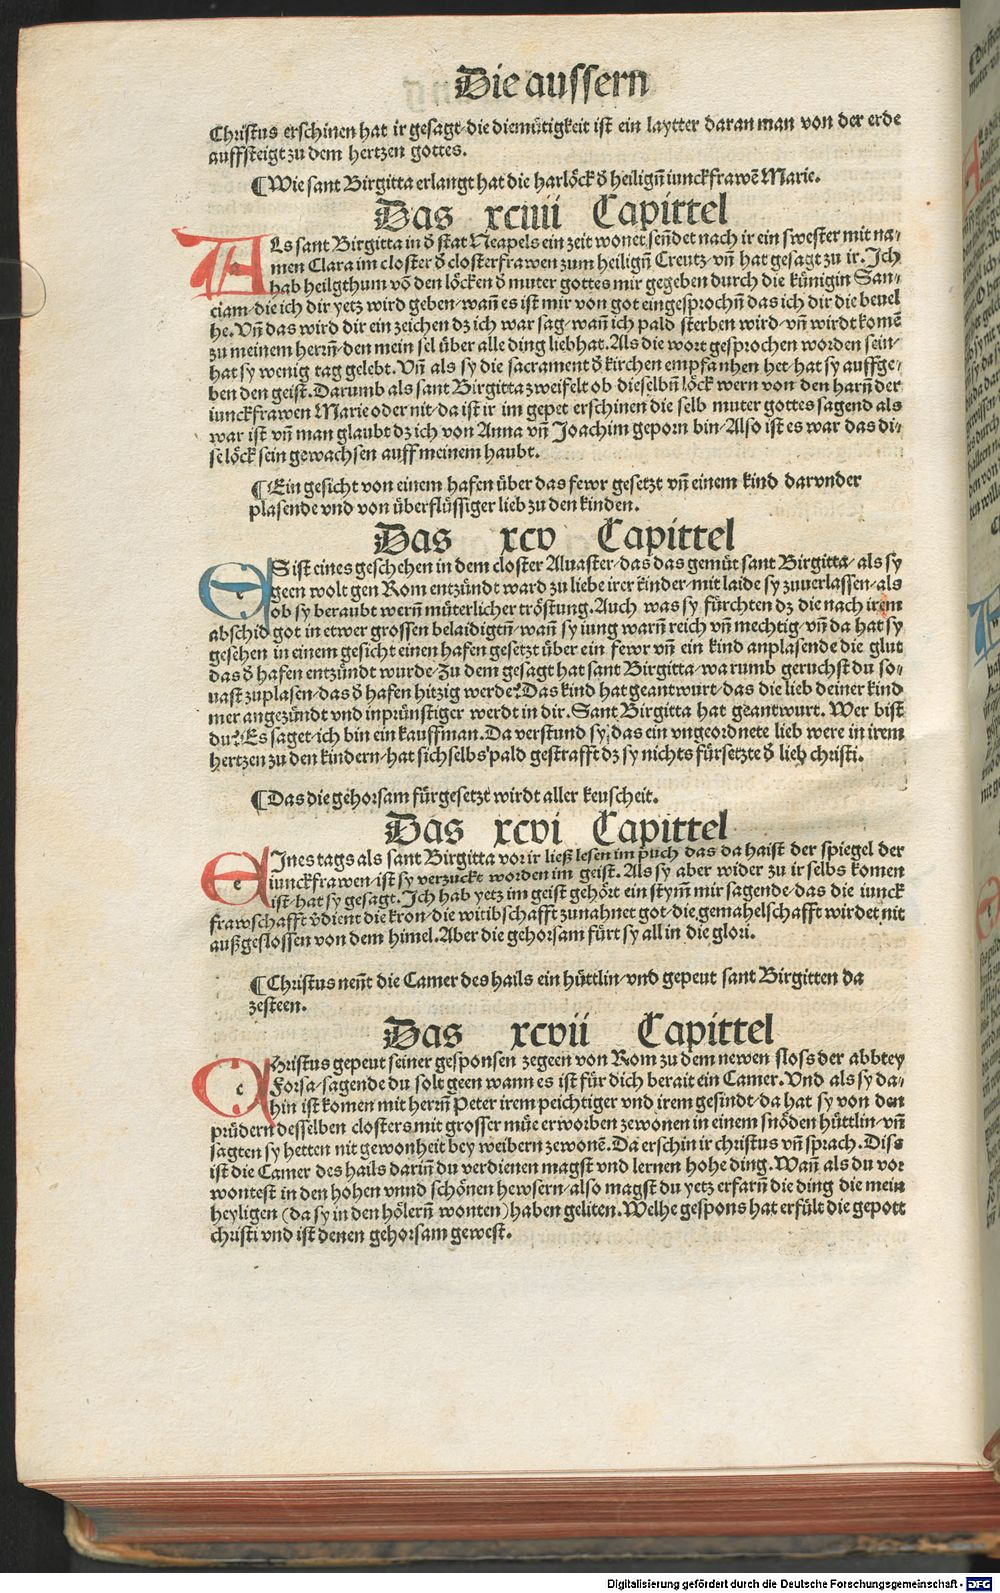 Die aussern
Christus erschinen hat ir gesagt/die diemütigkeit ist ein laytter daran man von der erde
auffsteigt zu dem hertzen gottes.
¶ Wie sant Birgitta erlangt hat die harlöck d̕ heiligñ iunckfrawē Marie.
Das xciiii Capittel
ALs sant Birgitta in d̕ stat Neapels ein zeit wonet/sen̄det nach ir ein swester mit na/
men Clara im closter d̕ closterfrawen zum heiligñ Creutz/vn̄ hat gesagt zu ir. Ich
hab heilgthum vō den löcken d̕ muter gottes mir gegeben durch die künigin San/
ciam/die ich dir yetz wird geben/wan̄ es ist mir von got eingesprochn̄ das ich dir die beuel
he. Vn̄ das wird dir ein zeichen dz ich war sag/wan̄ ich pald sterben wird/vn̄ wirdt komē
zu meinem herrn̄/den mein sel über alle ding liebhat. Als die wort gesprochen worden sein/
hat sy wenig tag gelebt. Vn̄ als sy die sacrament d̕ kirchen empfanhen het/hat sy auffge/
ben den geist. Darumb als sant Birgitta zweifelt ob dieselbn̄ löck wern von den harn̄ der
iunckfrawen Marie oder nit/da ist ir im gepet erschinen die selb muter gottes sagend als
war ist vn̄ man glaubt dz ich von Anna vn̄ Joachim geporn bin/Also ist es war das di/
se löck sein gewachsen auff meinem haubt.
¶ Ein gesicht von einem hafen über das fewr gesetzt vn̄ einem kind darvnder
plasende vnd von überflüssiger lieb zu den kinden.
Das xcv Capittel
ES ist eines geschehen in dem closter Aluaster/das das gemüt sant Birgitta/als sy
geen wolt gen Rom entzündt ward zu liebe irer kinder/mit laide sy zuuerlassen/als
ob sy beraubt wern̄ müterlicher tröstung. Auch was sy fürchten dz die nach irem
abschid got in etwer grossen belaidigtn̄/wan̄ sy iung warn̄ reich vn̄ mechtig/vn̄ da hat sy
gesehen in einem gesicht einen hafen gesetzt über ein fewr vn̄ ein kind anplasende die glut
das d̕ hafen entzündt wurde/Zu dem gesagt hat sant Birgitta/warumb geruchst du so/
uast zuplasen/das d̕ hafen hitzig werde? Das kind hat geantwurt/das die lieb deiner kind
mer angezündt vnd inprünstiger werdt in dir. Sant Birgitta hat geantwurt. Wer bist
du? Es saget/ich bin ein kauffman. Da verstund sy/das ein vngeordnete lieb were in irem
hertzen zu den kindern/hat sich selbs pald gestrafft dz sy nichts fürsetzte d̕ lieb christi.
¶ Das die gehorsam fürgesetzt wirdt aller keuscheit.
Das xcvi Capittel
EJnes tags als sant Birgitta vor ir ließ lesen im puch das da haist der spiegel der
iunckfrawen/ist sy verzuckt worden im geist. Als sy aber wider zu ir selbs komen
ist/hat sy gesagt. Ich hab yetz im geist gehört ein stym̄ mir sagende/das die iunck
frawschafft v̕dient die kron/die witibschafft zunahnet got/die gemahelschafft wirdet nit
außgeslossen von dem himel. Aber die gehorsam fürt sy all in die glori.
¶ Christus nen̄t die Camer des hails ein hüttlin/vnd gepeut sant Birgitten da
zesteen.
Das xcvii Capittel
CHristus gepeut seiner gesponsen zegeen von Rom zu dem newen sloss der abbtey
Forfa/sagende du solt geen wann es ist für dich berait ein Camer. Vnd als sy da/
hin ist komen mit herrn̄ Peter irem peichtiger vnd irem gesindt/da hat sy von den
prüdern desselben closters mit grosser müe erworben zewonen in einem snöden hüttlin/vn̄
sagten sy hetten nit gewonheit bey weibern zewonē. Da erschin ir christus vn̄ sprach. Diss
ist die Camer des hails darin̄ du verdienen magst vnd lernen hohe ding. Wan̄ als du vor
wontest in den hohen vnnd schönen hewsern/also magst du yetz erfarn̄ die ding die mein
heyligen (da sy in den hölern̄ wonten) haben geliten. Welhe gespons hat erfült die gepott
christi vnd ist denen gehorsam gewest.
Digitalisierung gefördert durch die Deutsche Forschungsgemeinschaft - DFG